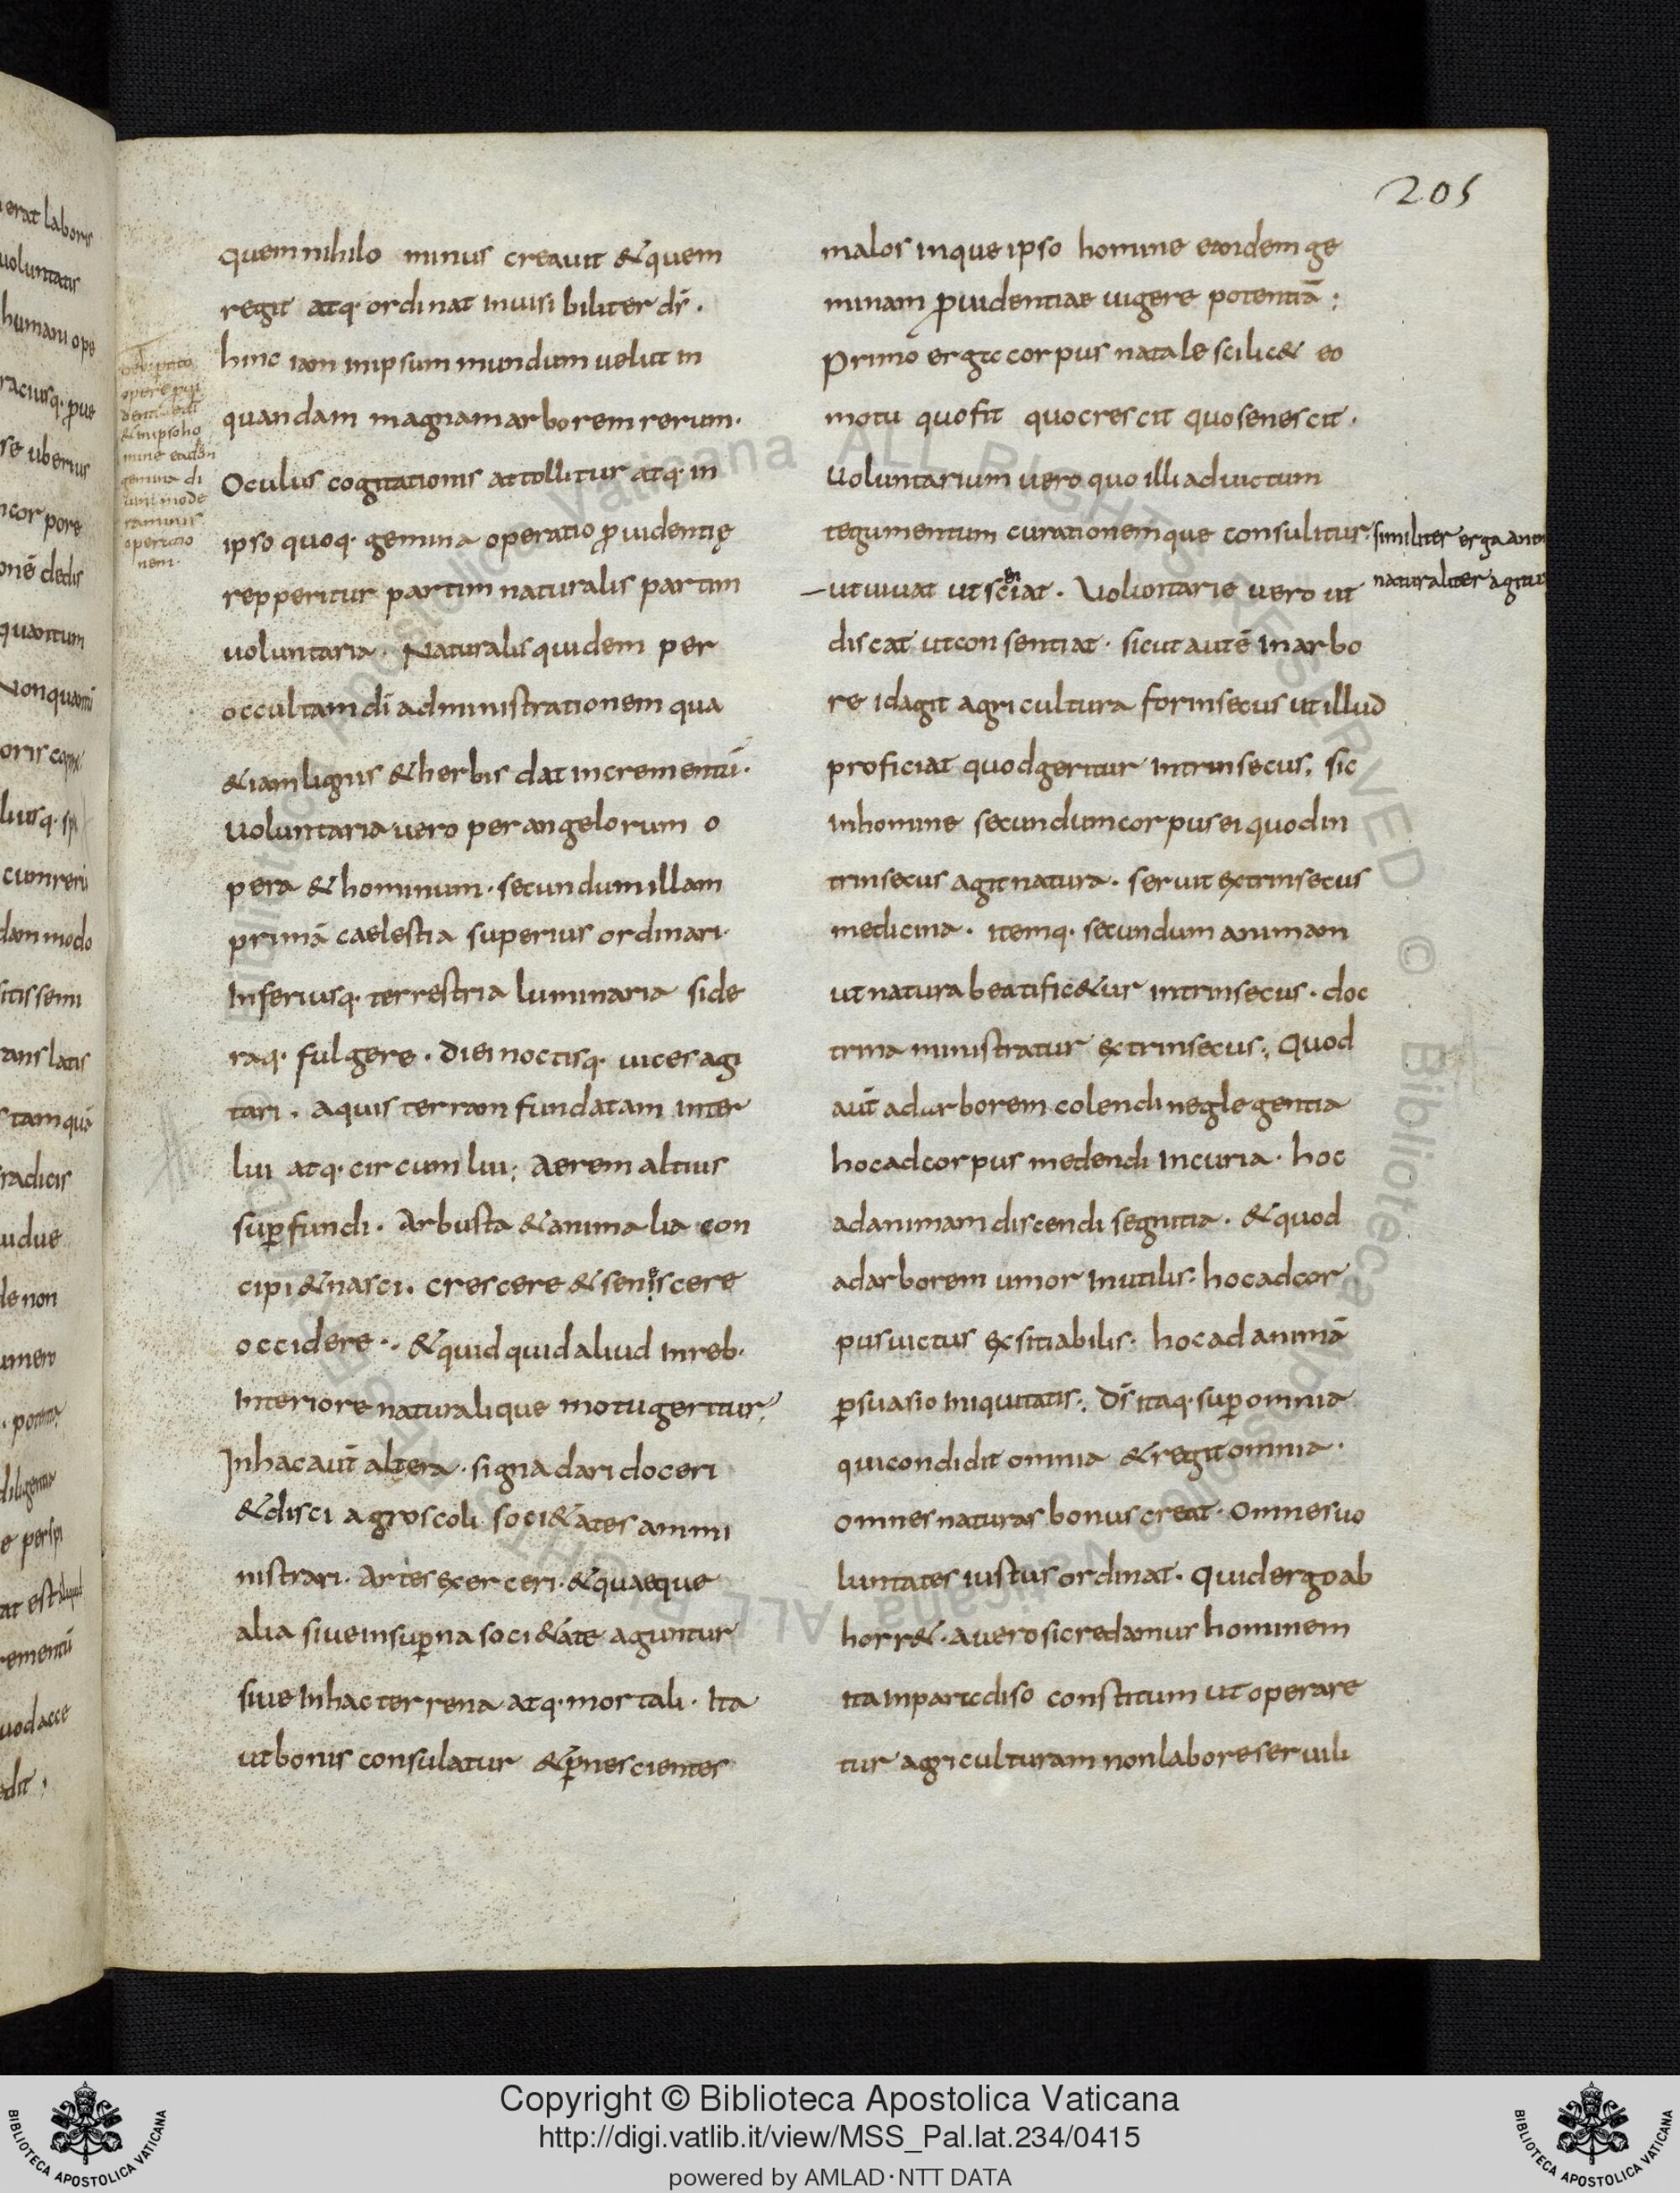 205
quem nihilo minus creauit & quem
regit atq· ordinat inuisibiliter dr̄.
hinc iam in ipsum mundum uelut in
quandam magnam arborem rerum·
Oculus cogitationis attollitur atq· in
ipso quoq· gemina operatio ꝓuidentię
repperitur partim naturalis partim
uoluntaria· Naturalis quidem per
occultam di̅ administrationem qua
&iam lignis & herbis dat incrementū·
Uoluntaria uero per angelorum o
pera & hominum· secundum illam
primā caelestia superius ordinari·
Inferiusq· terrestria luminaria side
raq· fulgere· diei noctisq· uices agi
tari· aquis terram fundatam inter
lui atq· circumlui; Aerem altius
suꝑfundi· Arbusta & animalia con
cipi & nasci· crescere & seniscere
occidere·· & quidquid aliud in reb·
Interiore naturalique motu geritur;
In hac aūt altera· signa dari doceri
& disci agros coli soci&ates ammi
nistrari· Artes exerceri· & quaeque
alia siue in suꝑna soci&ate aguntur
siue In hac terrena atq· mortali· Ita
ut bonis consulatur & ꝑ nescientes
oculis cogitato
opere ꝓui
dentiae di
& in ipso ho
mine eadem
gemina di
uini mode
raminis
operatio
nem·
malos inque ipso homine eandem ge
minam ꝓuidentiae uigere potentiā;
Primo ergo corpus natale scilic& eo
motu quo fit quo crescit quo senescit·
Uoluntarium uero quo illi ad uictum
tegumentum curationemque consulitur· similiter erga anim
— ut uiuat ut sentiat· Voluntarie uero ut naturaliter agitur
discat ut consentiat· sicut autē In arbo
re id agit agricultura forinsecus ut illud
proficiat quod geritur Intrinsecus, sic
In homine secundum corpus ei quod in
trinsecus agit natura· seruit extrinsecus
medicina· itemq· secundum animam
ut natura beatific&ur intrinsecus· doc
trina ministratur extrinsecus; Quod
aūt ad arborem colendi neglegentia
hoc ad corpus medendi Incuria· hoc
ad animam discendi segnitia· & quod
ad arborem umor Inutilis· hoc ad cor
pus uictus exsitiabilis· hoc ad animā
ꝑsuasio Iniquitatis; Ds̄ itaq· suꝑ omnia
qui condidit omnia & regit omnia·
omnes naturas bonus creat· Omnes uo
luntates iustus ordinat· Quid ergo ab
horr&· a uero si credamus hominem
Ita In paradiso constitum ut operare
tur agriculturam non labore seruili
Copyright © Biblioteca Apostolica Vaticana
http://digi.vatlib.it/view/MSS_Pal.lat.234/0415
powered by AMLAD·NTT DATA
BIBLIOTECA APOSTOLICA VATICANA
BIBLIOTECA APOSTOLICA VATICANA